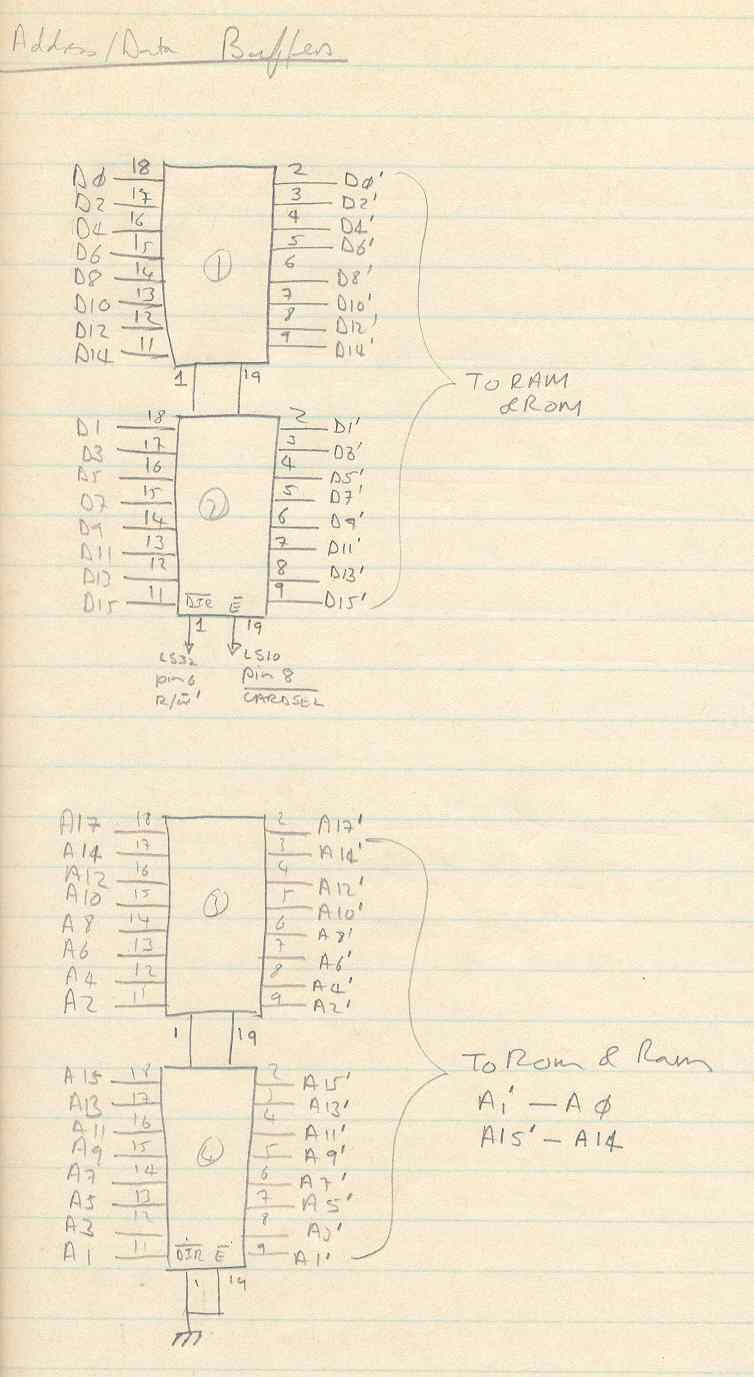 Address/Data Buffers
D0 18 2 D0'
D2 17 3 D2'
D4 16 4 D4'
D6 15 5 D6'
D8 14 ① 6 D8'
D10 13 7 D10'
D12 12 8 D12'
D14 11 9 D14'
1 19
TO RAM
& ROM
D1 18 2 D1'
D3 17 3 D3'
D5 16 4 D5'
D7 15 ② 5 D7'
D9 14 6 D9'
D11 13 7 D11'
D13 12 8 D13'
D15 11 D̅I̅R̅ E̅ 9 D15'
1 19
LS32 LS10
pin 6 pin 8
R/W̅' C̅A̅R̅D̅S̅E̅L̅
A17 18 2 A17'
A14 17 3 A14'
A12 16 4 A12'
A10 15 ③ 5 A10'
A8 14 6 A8'
A6 13 7 A6'
A4 12 8 A4'
A2 11 9 A2'
1 19
To Rom & Ram
A1' — A0
A15' — A14
A15 18 2 A15'
A13 17 3 A13'
A11 16 4 A11'
A9 15 ④ 5 A9'
A7 14 6 A7'
A5 13 7 A5'
A3 12 8 A3'
A1 11 D̅I̅R̅ E̅ 9 A1'
1 19